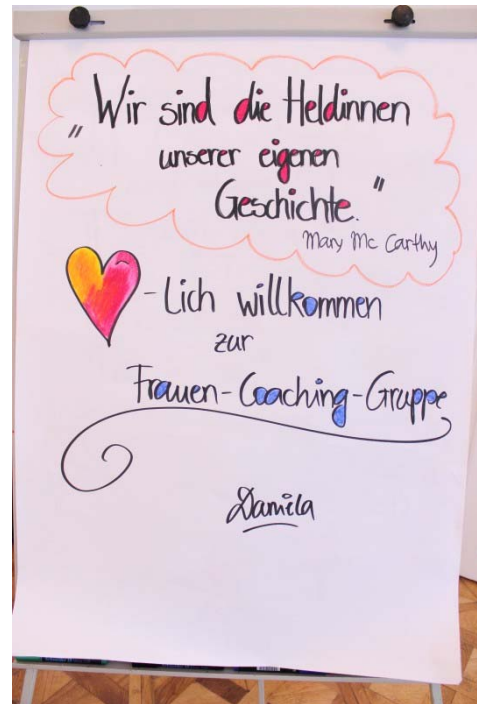 „Wir sind die Heldinnen
unserer eigenen
Geschichte."
Mary Mc Carthy
-lich willkommen
zur
Frauen-Coaching-Gruppe
Damila